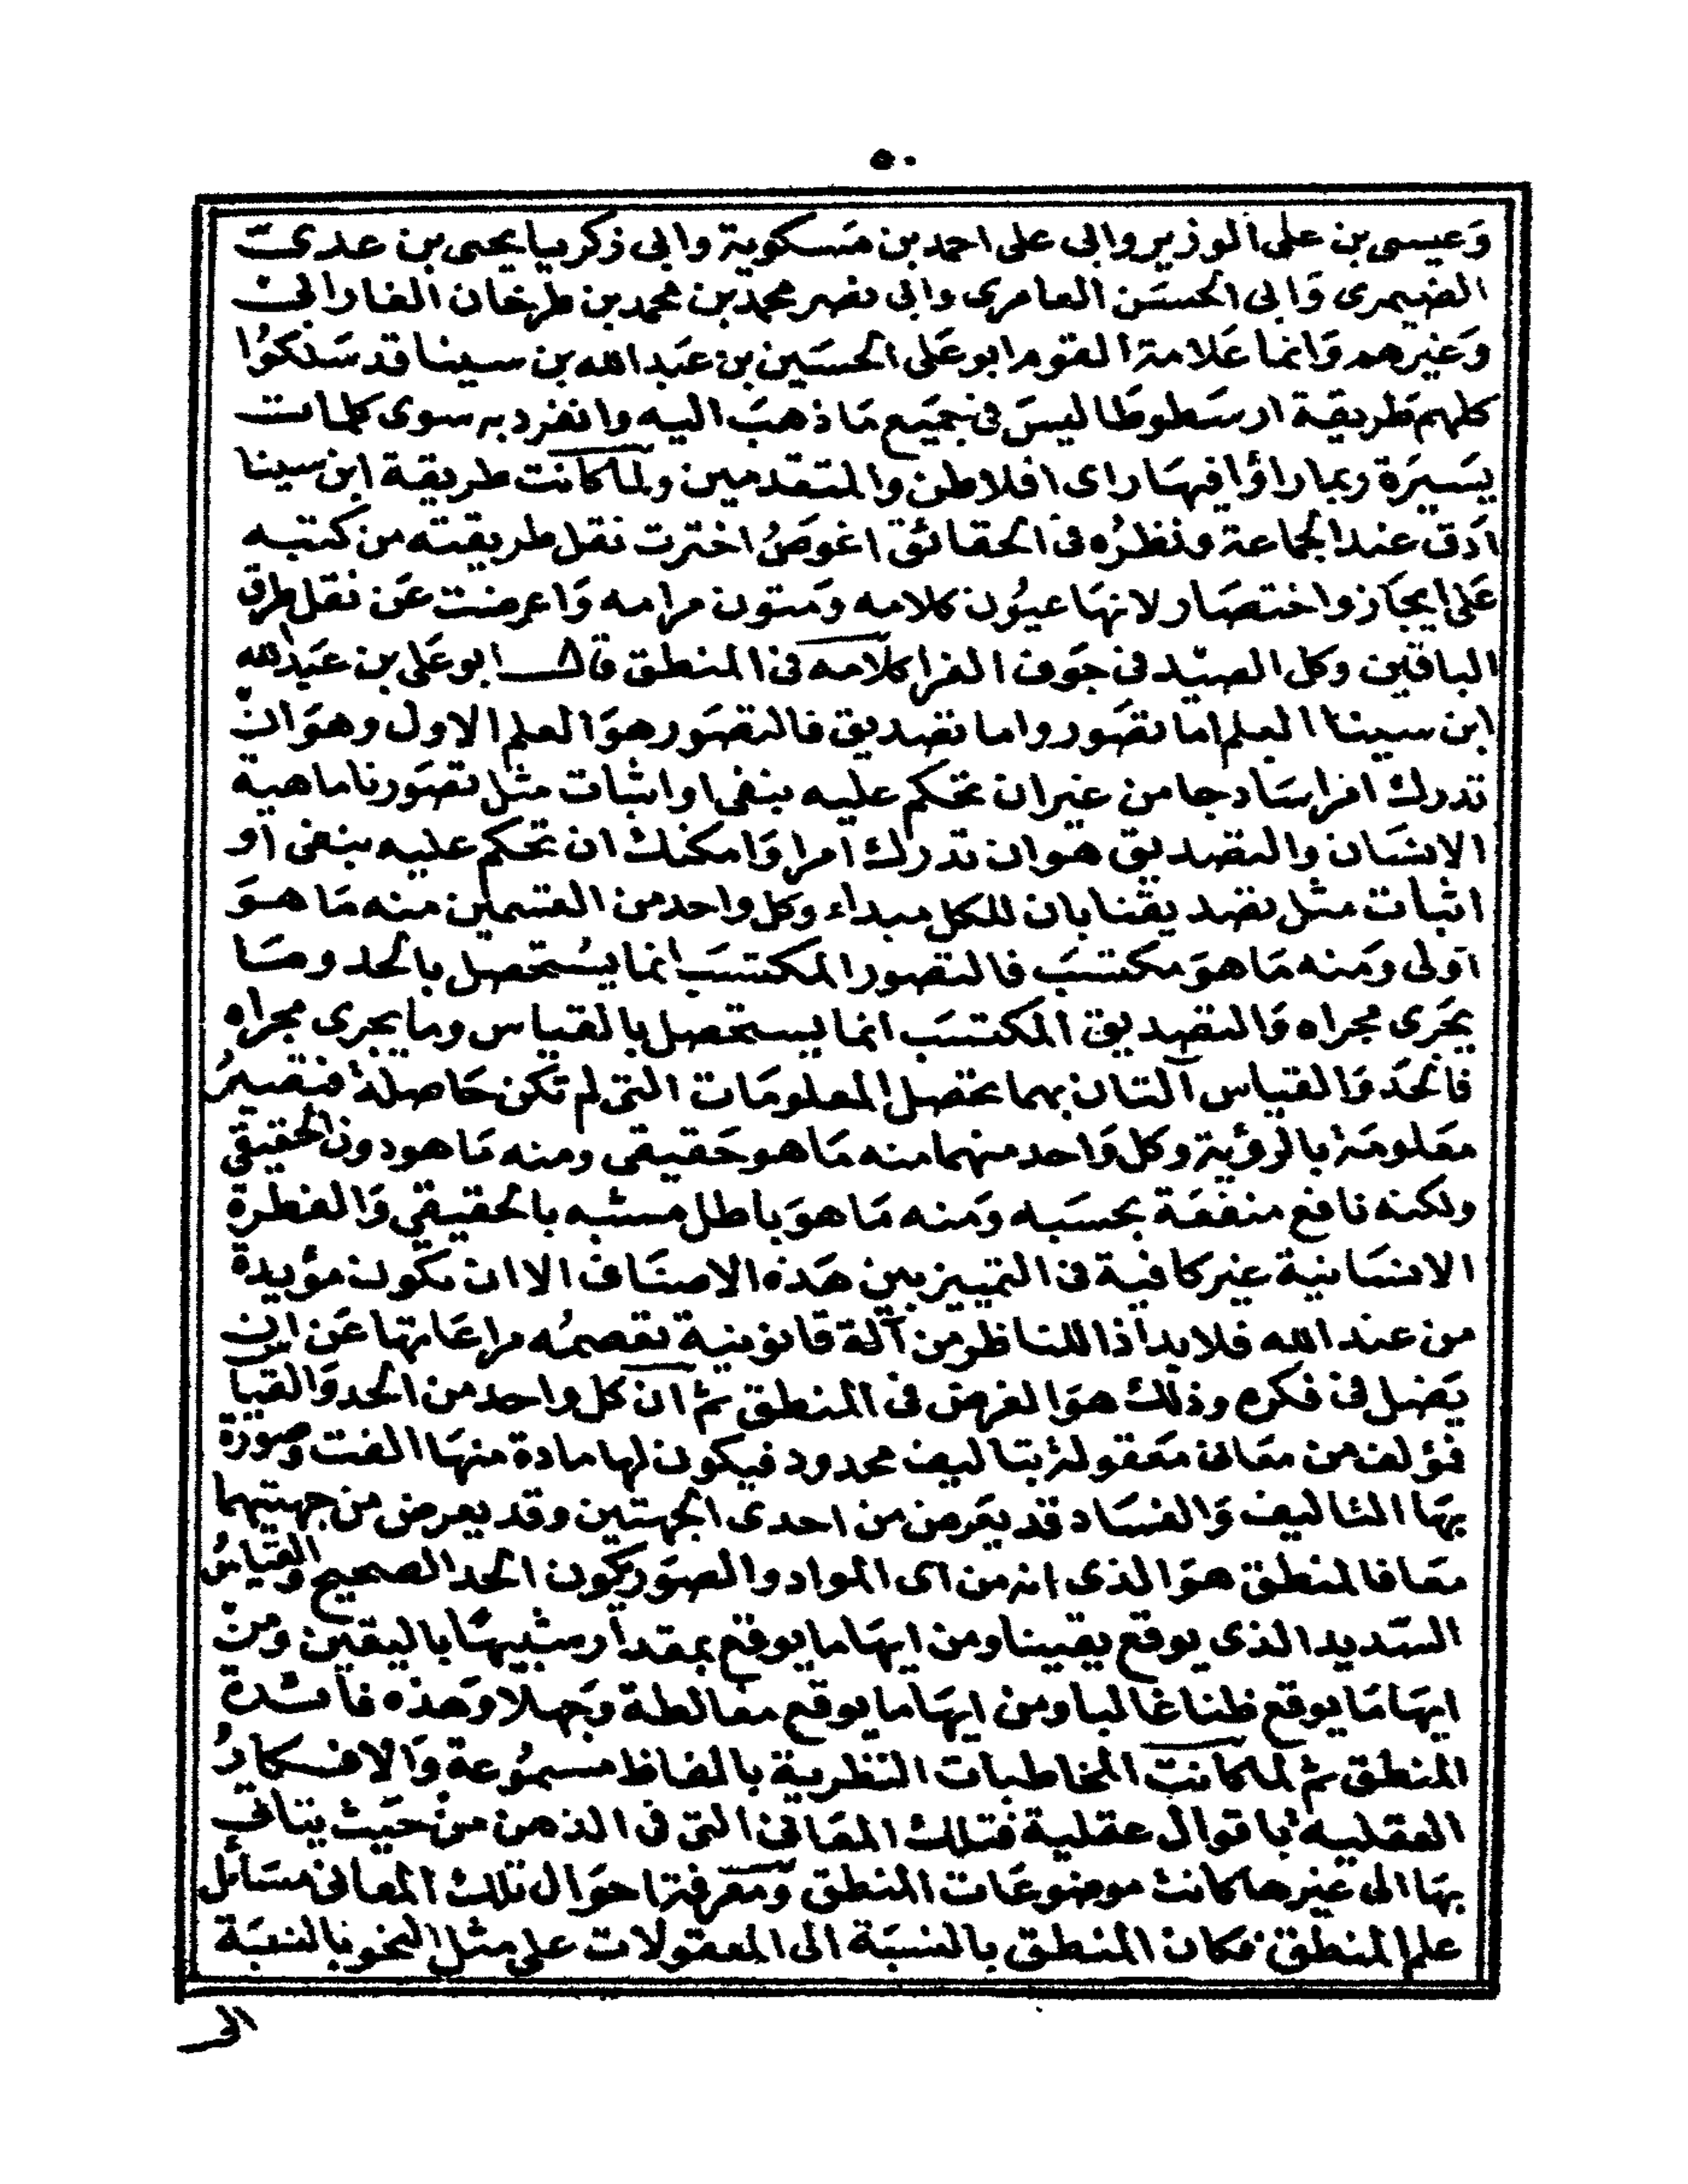 ٥٠
وَعيسى بن على الوزير وابى على احمد بن مَسكوية وابى زكريا يحيى بن عدىّ
الصّيمرى وَابى الحسَن العامرى وابى نصر محمد بن محمد بن طرخان الفارابىّ
وَغيرهم وَانما عَلامة القوم ابو عَلى الحسَين بن عَبد الله بن سينا قد سَلكوُا
كلهم طَريقة ارسَطوطَاليسَ فى جَميَع مَا ذهبَ اليه وانفرد به سوى كلمات
يسَيرَة ربما راؤا فيهَا راى افلاطن والمتقدمين ولما كانت طريقة ابن سينا
ادَق عند الجماعة ونظرُه فى الحقائق اغوَصُ اخترت نقل طريقته من كتبه
عَلى ايجَاز واختصَار لانهَا عيوُن كلامه وَمتون مرامه وَاعرضت عَن نقل طرق
الباقين وكل الصيّد فى جَوف الفرا كلامه فى المنطق قال ابو عَلى بن عَبد الله
ابن سينا العلم اما تصَور واما تصديق فالتصَور هوَ العلم الاول وهوَ انْ
تدرك امرا سَاذجا من غير ان تحكم عليه بنفى او اثبات مثل تصَورنا ماهية
الانسَان والتصديق هو ان تدرك امرا وَامكنك ان تحكم عليه بنفى او
اثبات مثل تصديقنا بان للكل مبداء وكل واحد من القسمين منه مَا هوَ
اولى وَمنه مَا هوَ مكتسَب فالتصور المكتسَب انما يسُتحصل بالحد ومَا
يجَرى مجراه وَالتصديق المكتسَب انما يستحصل بالقياس وما يجرى مجراه
فالحَد وَالقياس آلتان بهما تحصل المعلومَات التى لم تكن حَاصلة فتصيرُ
معَلومَة بالرؤية وكل وَاحد منهما منه مَا هو حَقيقى ومنه مَا هو دون الحقيقى
ولكنه نافع منفعَة بحسَبه وَمنه مَا هوَ باطل مشبه بالحقيقى وَالفطرة
الانسَانية غير كافية فى التمييز بين هَذه الاصنَاف الا ان تكون مؤيدة
من عند الله فلابد اذا للناظر من آلة قانونية تعصمُه مراعَاتها عَن ان
يَضل فى فكره وذلك هوَ الغرض فى المنطق ثم ان كل واحد من الحد وَالقيا
فؤلف من معَانى معَقولة بتاليف محدود فيكون لها مادة منهَا الفت وَصورة
بهَا التاليف وَالفسَاد قد يعَرض من احدى الجهتين وقد يعرض من جهتيهما
معَا فالمنطق هوَ الذى انه من اى المواد والصوَر يكون الحد الصحيح والقياسُ
السّديد الذى يوقع يقينا ومن ايهَا ما يوقع بمقدار شبيهَا باليقين ومنْ
ايهَا مَا يوقع ظنا غالبا ومن ايهَا ما يوقع مغالطة وَجهلا وَهَذه فائدة
المنطق ثم لما كانت المخاطبات النظرية بالفاظ مسموُعة وَالافكارُ
العقليه باقوال عقلية فتلك المعَانى التى فى الذهن من حَيث يتاتى
بهَا الى غيرها كانت موضوعَات المنطق وَمعَرفة احوَال تلك المعانى مسَائل
علم المنطق فكان المنطق بالنسبَة الى المعقولات على مثل النحو بالنسبَة
الى